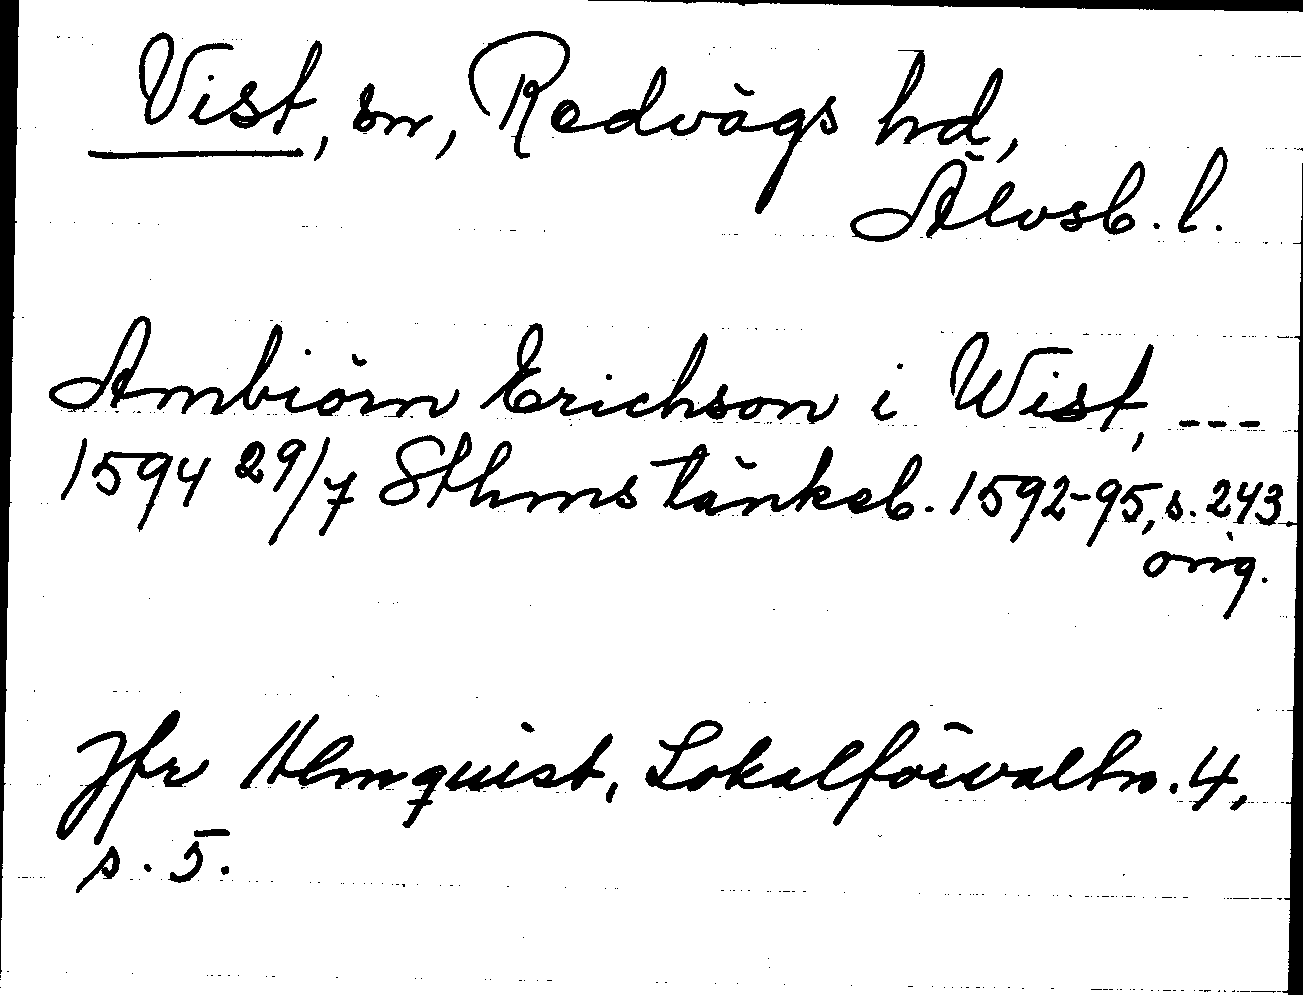 Vist, sn, Redvägs hd,
Älvsb. l.
Ambiörn Erichson i Wist, ---
1594 29/7 Sthms tänkeb. 1592-95, s. 243
orig.
Jfr Almquist, Lokalförvaltn. 4,
s. 5.